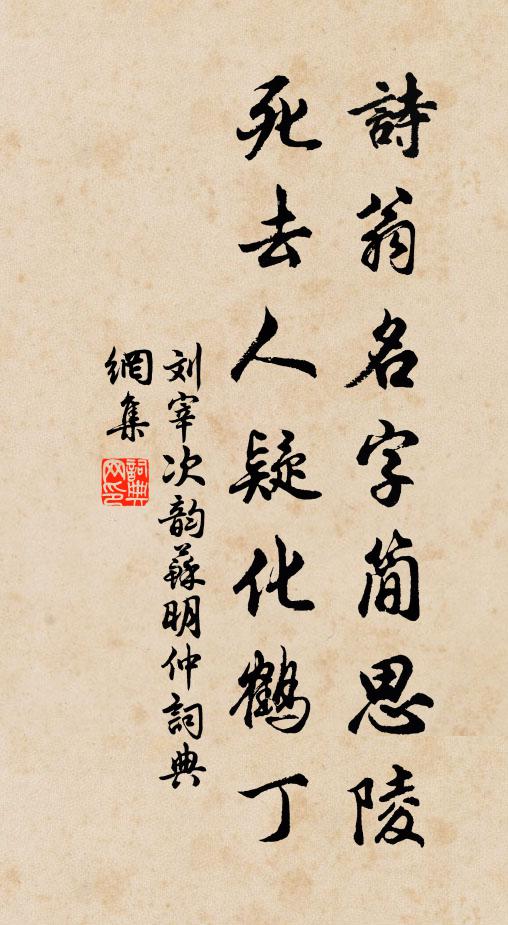 詩翁名字简思陵
死去人疑化鶴丁
刘宰次韵蘇明仲詞典
網集
詞典
网印